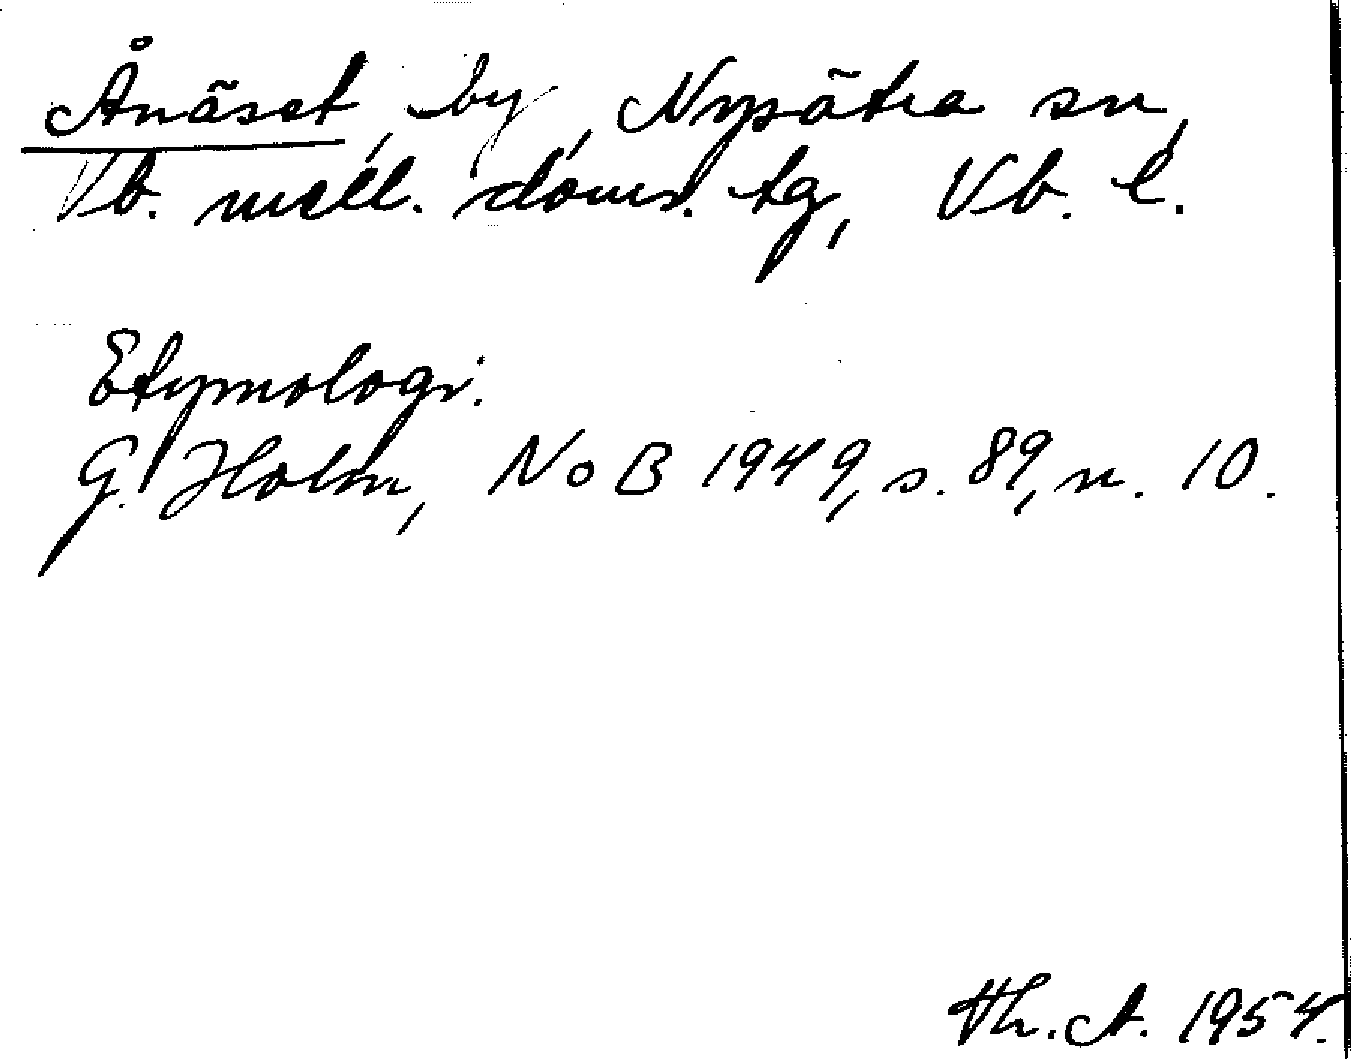 Ånäset, by, Nysätra sn,
Vb. mell. doms. tg, Vb. l.
Etymologi.
G. Holm, NoB 1949, s. 89, n. 10.
Th. A. 1954.